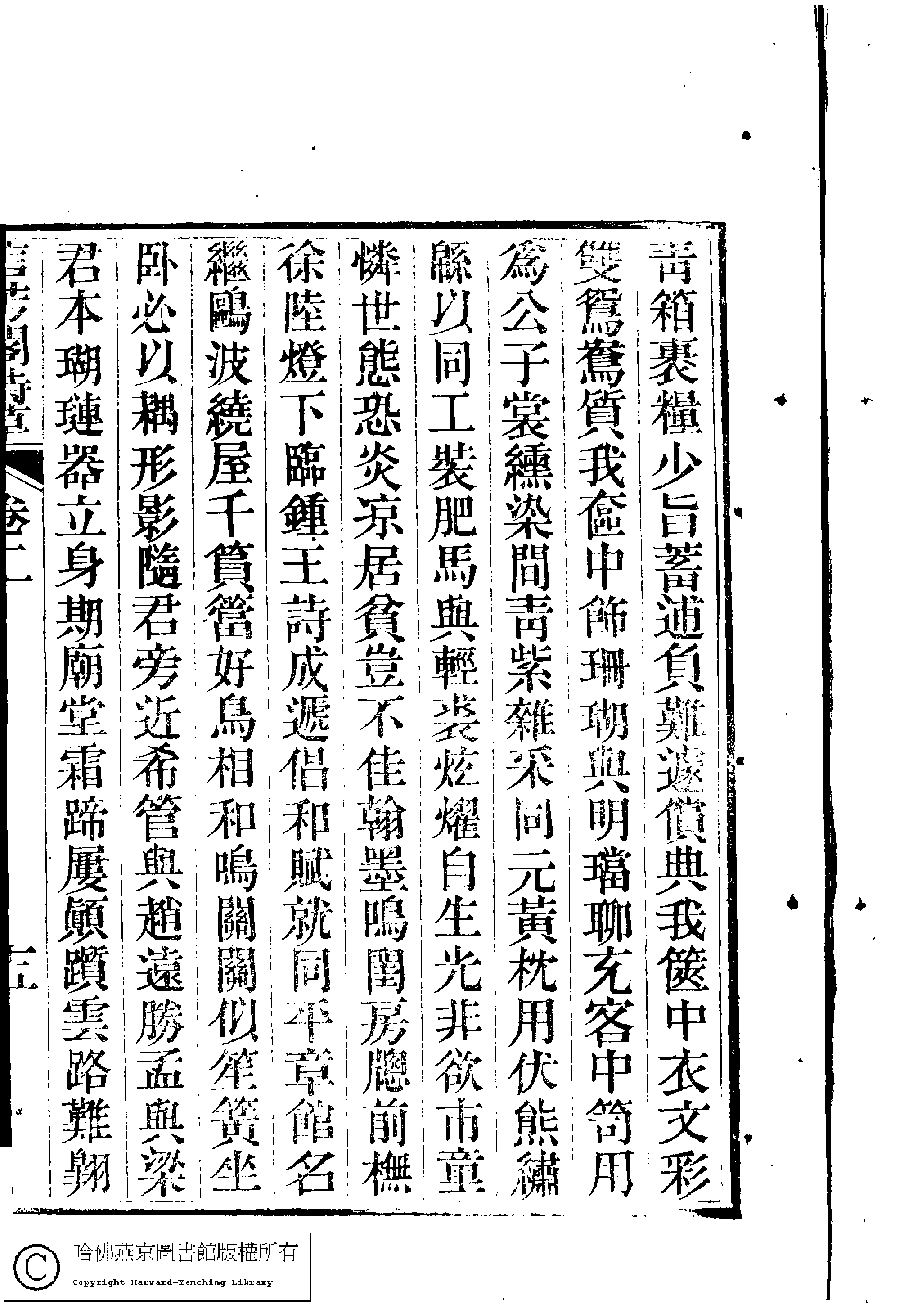 青箱裹糧少旨蓄逋負難遽償典我篋中衣文彩
雙鴛鴦質我奩中飾珊瑚與明璫聊充客中笥用
為公子裳纁染間青紫雜采同元黃枕用伏熊繡
縣以同工裝肥馬與輕裘炫燿自生光非欲市童
憐世態恐炎凉居貧豈不佳翰墨鳴閨房牕前橅
徐陸燈下臨鍾王詩成遞侶和賦就同平章館名
繼鷗波繞屋千篔簹好鳥相和鳴關關似笙簧坐
卧必以耦形影隨君旁近希管與趙遠勝孟與梁
君本瑚璉器立身期廟堂霜蹄屢顛躓雲路難翱
閣詩草
卷二
五
哈佛燕京圖書館版權所有
Copyright Harvard-Yenching Library